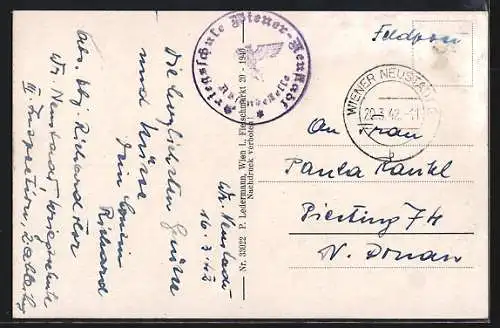 Abs. Obj. Richard
Wr. Neustadt, Kriegsschule
III. Inspection,
Die herzlichsten Grüsse
und Küsse
Dein Cousin
Richard
Wr. Neustadt
16.3.42
Kriegsschule Wiener-Neustadt
Nr. 33022 P. Ledermann, Wien I., Fleischmarkt 20 - 1940
Nachdruck verboten!
Feldpost
WIENER NEUSTADT
20.3.42.-11
b
An Frau
Paula
Piesting 74
N. Donau